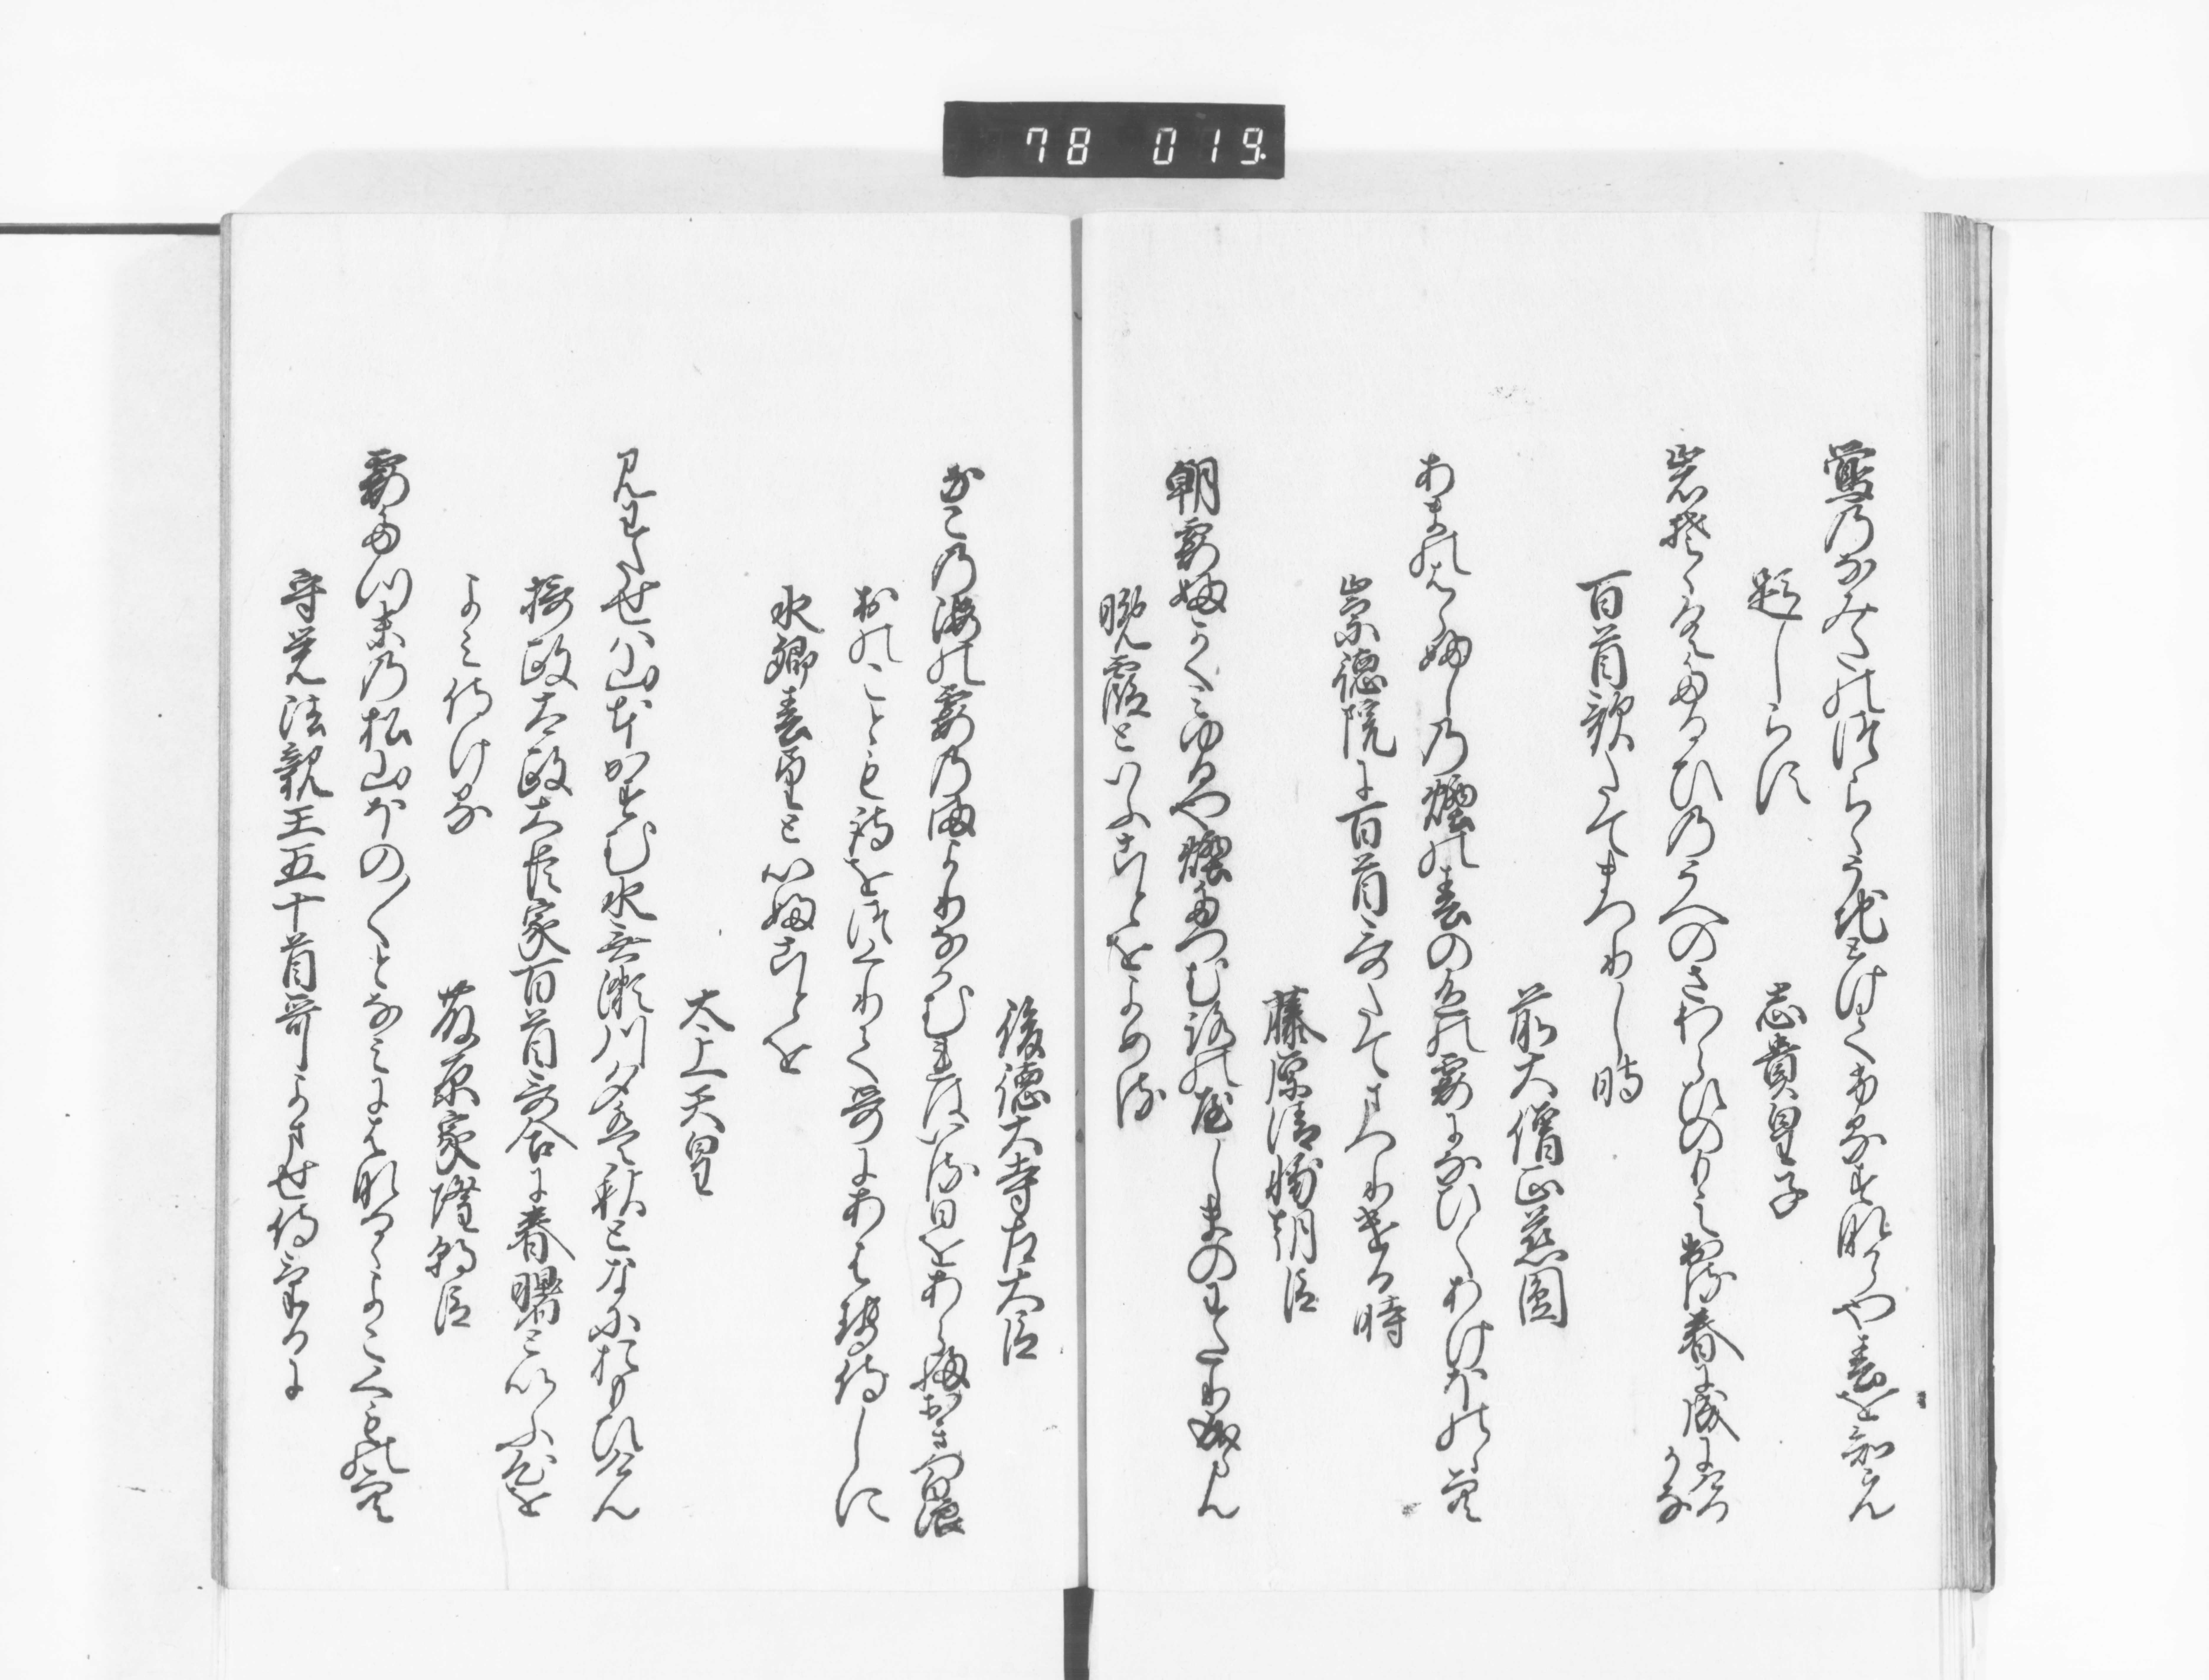 78 019.
鶯のなみたのつらゝうちとけてふるすなからや春を知らん
題しらす
志貴皇子
岩そゝくたるひのうへのさわらひのもえ出る春に成にける
かな
百首歌たてまつりし時
前大僧正慈圓
あまのはらふしの煙の春の色の霞になひくあけほのゝ空
崇徳院に百首哥たてまつりける時
藤原清輔朝臣
朝霞ふかくみゆるや煙たつむろのやしまのわたり成らん
晩霞といふことをよめる
後徳大寺左大臣
なこの海の霞のまよりなかむれはいる日をあらふおきつ白浪
おのことも詩をつくりて哥にあはせ侍しに
水郷春望といふことを
太上天皇
見わたせは山本かすむ水無瀬川夕へは秋となにおもひけん
摂政太政大臣家百首哥合に春曙といふ心を
よみ侍ける
藤原家隆朝臣
霞たつ末の松山ほの〱となみにはなるゝよこ雲の空
守覚法親王五十首哥よませ侍けるに